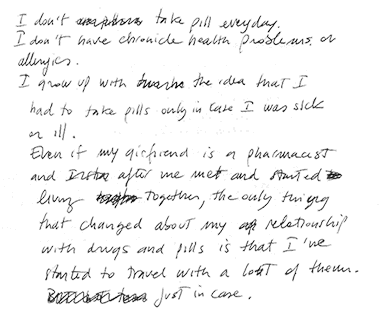 I don't take pill everyday.
I don't have chronicle health problems or
allergies.
I grow up with the idea that I
had to take pills only in case I was sick
or ill.
Even if my girfriend is a pharmacist
and after me met and started
living together, the only thing
that changed about my relationship
with drugs and pills is that I've
started to travel with a lot of them.
Just in case.